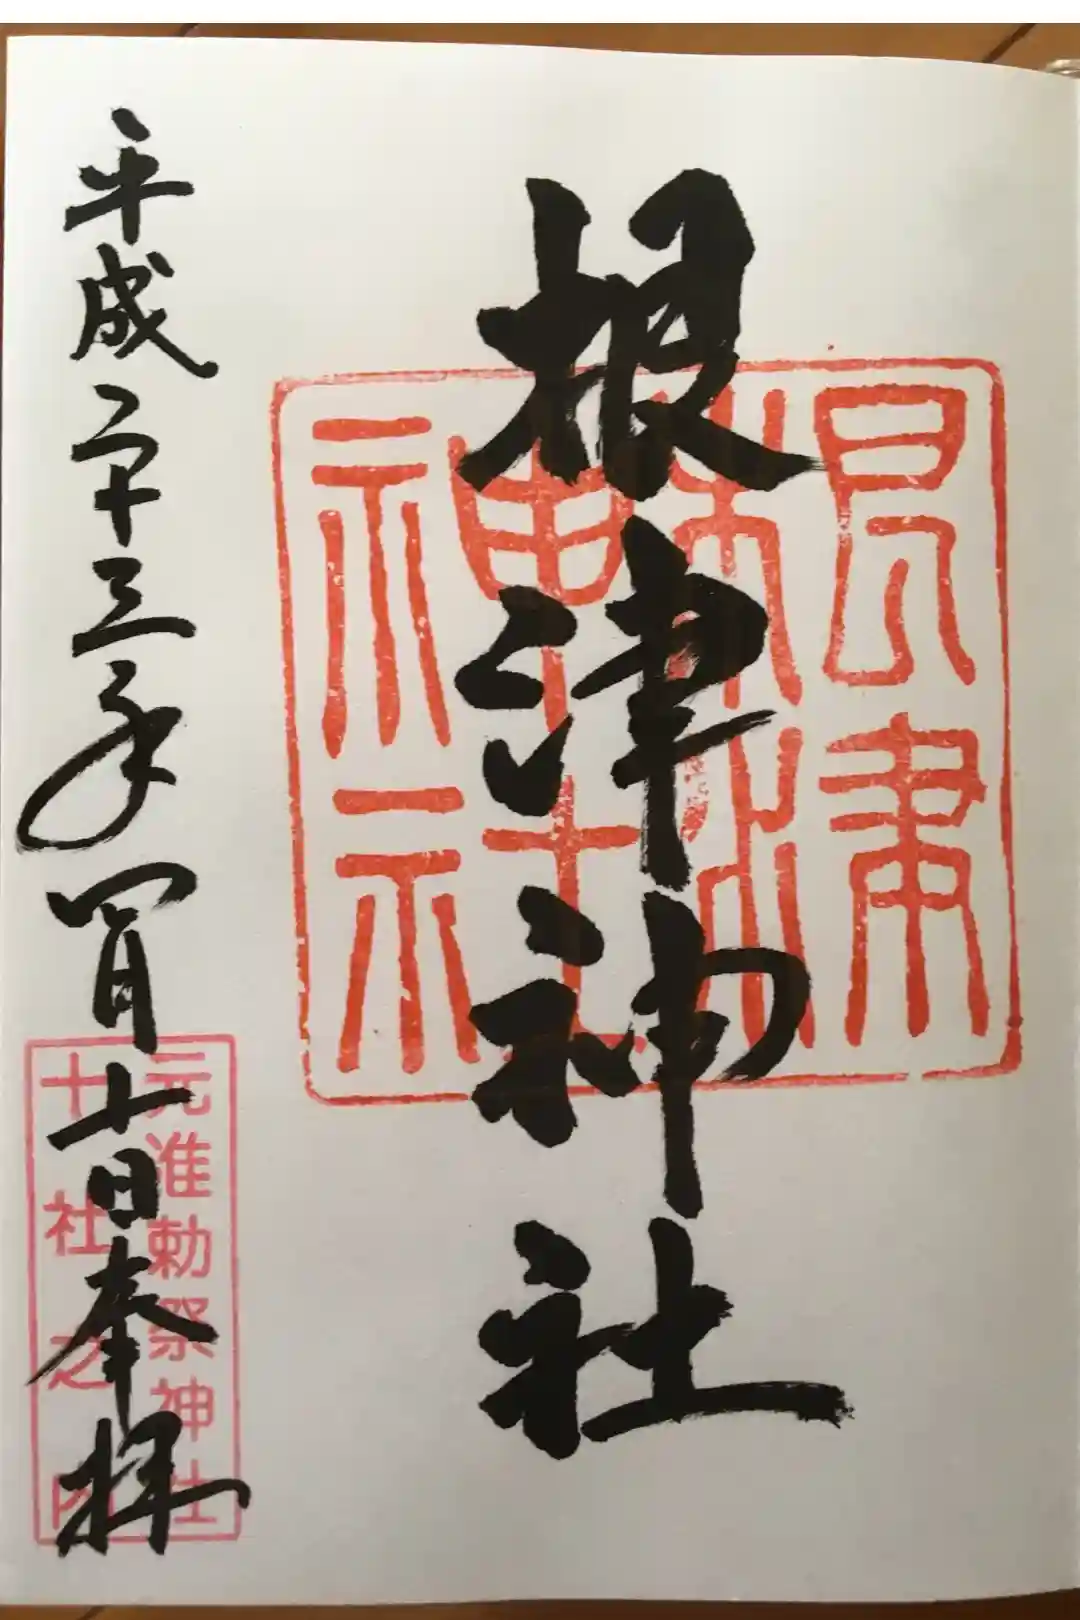 根津神社
根津
神社
平成二十三年四月十日奉拝
元准勅祭神社
十社之内